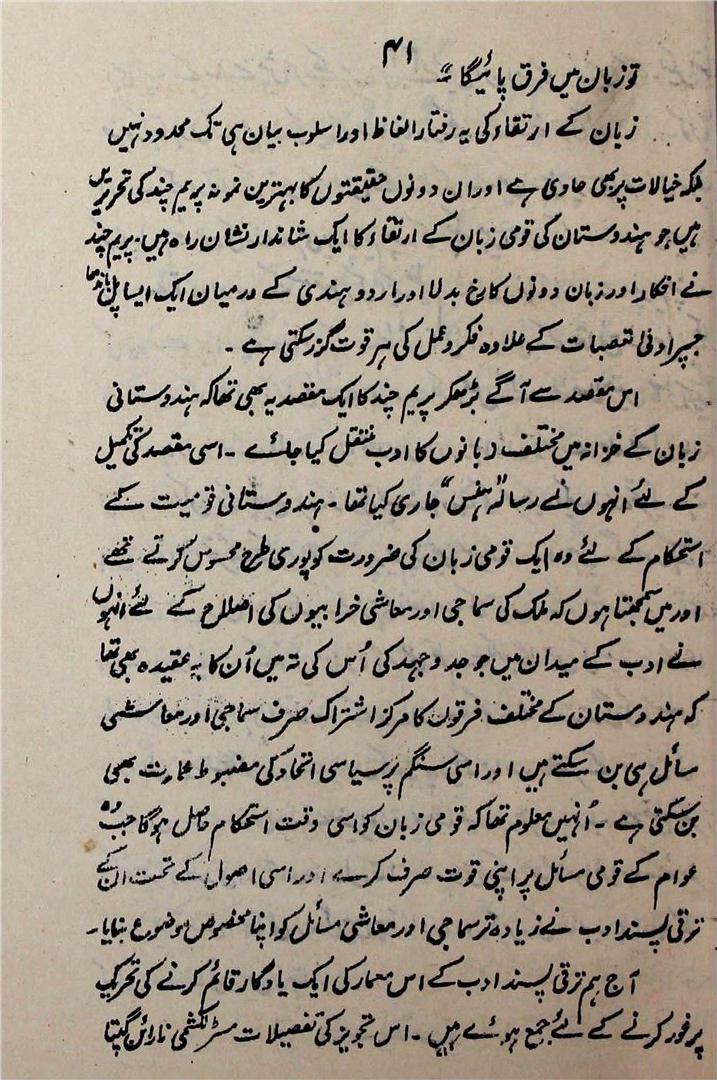 ۴۱
تو زبان میں فرق پائیگا ؎"
زبان کے ارتقاء کی یہ رفتار الفاظ اور اسلوب بیان ہی تک محدود نہیں
بلکہ خیالات پر بھی حاوی ہے اور ان دونوں حقیقتوں کا بہترین نمونہ پریم چند کی تحریریں
ہیں جو ہندوستان کی قومی زبان کے ارتقاء کا ایک شاندار نشان راہ ہیں۔ پریم چند
نے افکار اور زبان دونوں کا رخ بدلا اور اردو ہندی کے درمیان ایک ایسا پل باندھا
جسپر ادنیٰ تعصبات کے علاوہ فکر و عمل کی ہر قوت گزر سکتی ہے ۔
اس مقصد سے آگے بڑھکر پریم چند کا ایک مقصد یہ بھی تھا کہ ہندوستانی
زبان کے خزانہ میں مختلف زبانوں کا ادب منتقل کیا جائے ۔ اسی مقصد کی تکمیل
کے لئے انہوں نے رسالہ "ہنس" جاری کیا تھا ۔ ہندوستانی قومیت کے
استحکام کے لئے وہ ایک قومی زبان کی ضرورت کو پوری طرح محسوس کرتے تھے
اور میں سمجھتا ہوں کہ ملک کی سماجی اور معاشی خرابیوں کی اصلاح کے لئے انہوں
نے ادب کے میدان میں جو جدوجہد کی اُس کی تہ میں اُن کا یہ عقیدہ بھی تھا
کہ ہندوستان کے مختلف فرقوں کا مرکز اشتراک صرف سماجی اور معاشی
مسائل ہی بن سکتے ہیں اور اسی سنگم پر سیاسی اتحاد کی مضبوط عمارت بھی
بن سکتی ہے ۔ اُنہیں معلوم تھا کہ قومی زبان کو اسی وقت استحکام حاصل ہوگا جب وہ
عوام کے قومی مسائل پر اپنی قوت صرف کرے اور اسی اصول کے تحت ان کے
ترقی پسند ادب نے زیادہ تر سماجی اور معاشی مسائل کو اپنا مخصوص موضوع بنایا ۔
آج ہم ترقی پسند ادب کے اس معمار کی ایک یادگار قائم کرنے کی تحریک
پر غور کرنے کے لئے جمع ہوئے ہیں ۔ اس تجویز کی تفصیلات مسٹر لکشمی نارائن گپتا